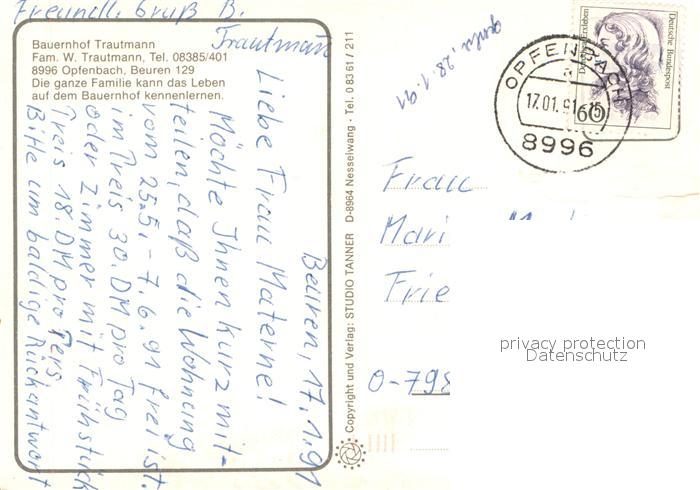 Bauernhof Trautmann
Fam. W. Trautmann, Tel. 08385/401
8996 Opfenbach, Beuren 129
Die ganze Familie kann das Leben
auf dem Bauernhof kennenlernen.
Beuren, 17.1.91
Liebe Frau Materne!
Möchte Ihnen kurz mit-
teilen, daß die Wohnung
vom 25.5.-7.6.91 frei ist.
im Preis 30.DM pro Tag
oder Zimmer mit Frühstück
Preis 18.DM pro Pers
Bitte um baldige Rückantwort
Freundl. Gruß B.
Trautmann
Copyright und Verlag: STUDIO TANNER D-8964 Nesselwang · Tel. 0 83 61 / 211
28.1.91
OPFENBACH
a
17.01.91-15
8996
Deutsche Bundespost
60
Frau
Mari
Frie
O-795
privacy protection
Datenschutz